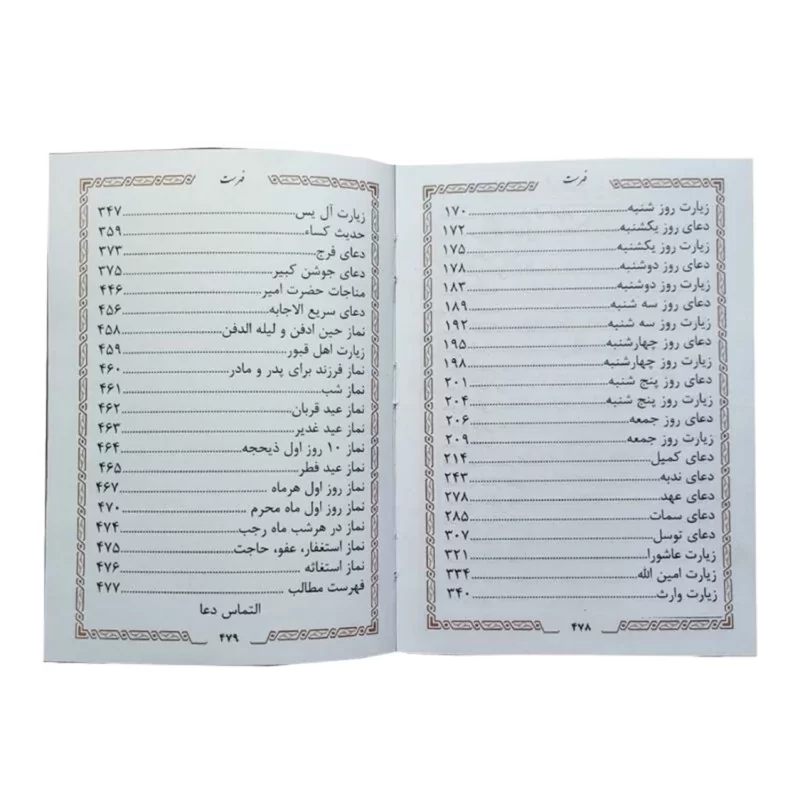 فهرست
زیارت روز شنبه ۱۷۰
دعای روز یکشنبه ۱۷۲
زیارت روز یکشنبه ۱۷۵
دعای روز دوشنبه ۱۷۸
زیارت روز دوشنبه ۱۸۳
دعای روز سه شنبه ۱۸۹
زیارت روز سه شنبه ۱۹۲
دعای روز چهارشنبه ۱۹۵
زیارت روز چهارشنبه ۱۹۸
دعای روز پنج شنبه ۲۰۱
زیارت روز پنج شنبه ۲۰۴
دعای روز جمعه ۲۰۶
زیارت روز جمعه ۲۰۹
دعای کمیل ۲۱۴
دعای ندبه ۲۴۳
دعای عهد ۲۷۸
دعای سمات ۲۸۵
دعای توسل ۳۰۷
زیارت عاشورا ۳۲۱
زیارت امین الله ۳۳۴
زیارت وارث ۳۴۰
۴۷۸
فهرست
زیارت آل یس ۳۴۷
حدیث کساء ۳۵۹
دعای فرج ۳۷۳
دعای جوشن کبیر ۳۷۵
مناجات حضرت امیر ۴۴۶
دعای سریع الاجابه ۴۵۶
نماز حین ادفن و لیله الدفن ۴۵۸
زیارت اهل قبور ۴۵۹
نماز فرزند برای پدر و مادر ۴۶۰
نماز شب ۴۶۱
نماز عید قربان ۴۶۲
نماز عید غدیر ۴۶۳
نماز ۱۰ روز اول ذیحجه ۴۶۴
نماز عید فطر ۴۶۵
نماز روز اول هرماه ۴۶۷
نماز روز اول ماه محرم ۴۷۰
نماز در هرشب ماه رجب ۴۷۴
نماز استغفار، عفو، حاجت ۴۷۵
نماز استغاثه ۴۷۶
فهرست مطالب ۴۷۷
التماس دعا
۴۷۹